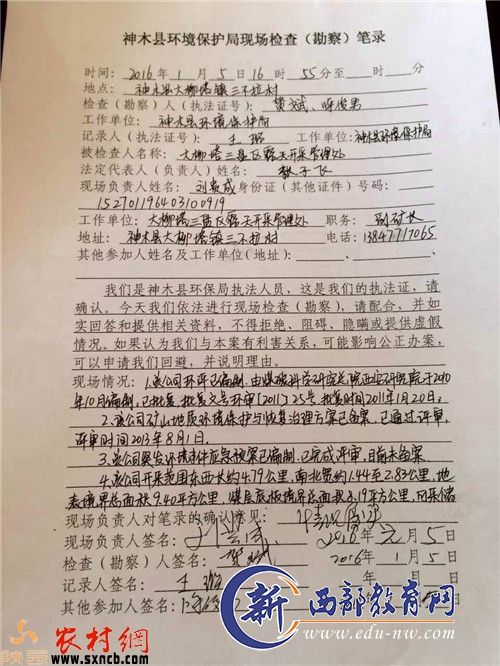 神木县环境保护局现场检查（勘察）笔录
时间：2016年1月5日16时55分至 时 分
地点：神木县大柳塔镇三不拉村
检查（勘察）人（执法证号）：贺斌、
工作单位：神木县环境保护局
记录人（执法证号）：王 工作单位：神木县环境保护局
被检查人名称：大柳塔三盘区露天开采管理处
法定代表人（负责人）姓名：
现场负责人姓名：刘 成身份证（其他证件）号码：
152701196403100919
工作单位：大柳塔三盘区露天开采管理处 职务：副矿长
地址：神木县大柳塔镇三不拉村 电话：13847717065
其他参加人姓名及工作单位（地址）：
我们是神木县环保局执法人员，这是我们的执法证，请
确认。今天我们依法进行现场检查（勘察），请配合，并如
实回答和提供相关资料，不得拒绝、阻碍、隐瞒或提供虚假
情况。如果认为我们与本案有利害关系，可能影响公正办案，
可以申请我们回避，并说明理由。
现场情况：1.该公司环评已编制，由煤炭科学研究总院西安研究院于2010
年10月编制，已批复，批复文号环审[2011]25号，批复时间2011年1月20日；
2.该公司矿山地质环境保护与恢复治理方案已备案，已通过评审，
评审时间2013年8月1日。
3.该公司突发环境事件应急预案已编制，已完成评审，目前未备案
4.该公司开采范围东西长约4.79公里，南北宽约1.44至2.83公里，地
表境界总面积9.40平方公里，煤层底板境界总面积8.19平方公里，可采储
现场负责人对笔录的确认意见：情况属实
现场负责人签名：刘 成 2016年元月5日
检查（勘察）人签名：贺斌 2016年1月5日
记录人签名：王 年 月 日
其他参加人签名：
新 西部教育网
www.edu-nw.com
陕西 农村網
www.sxncb.com